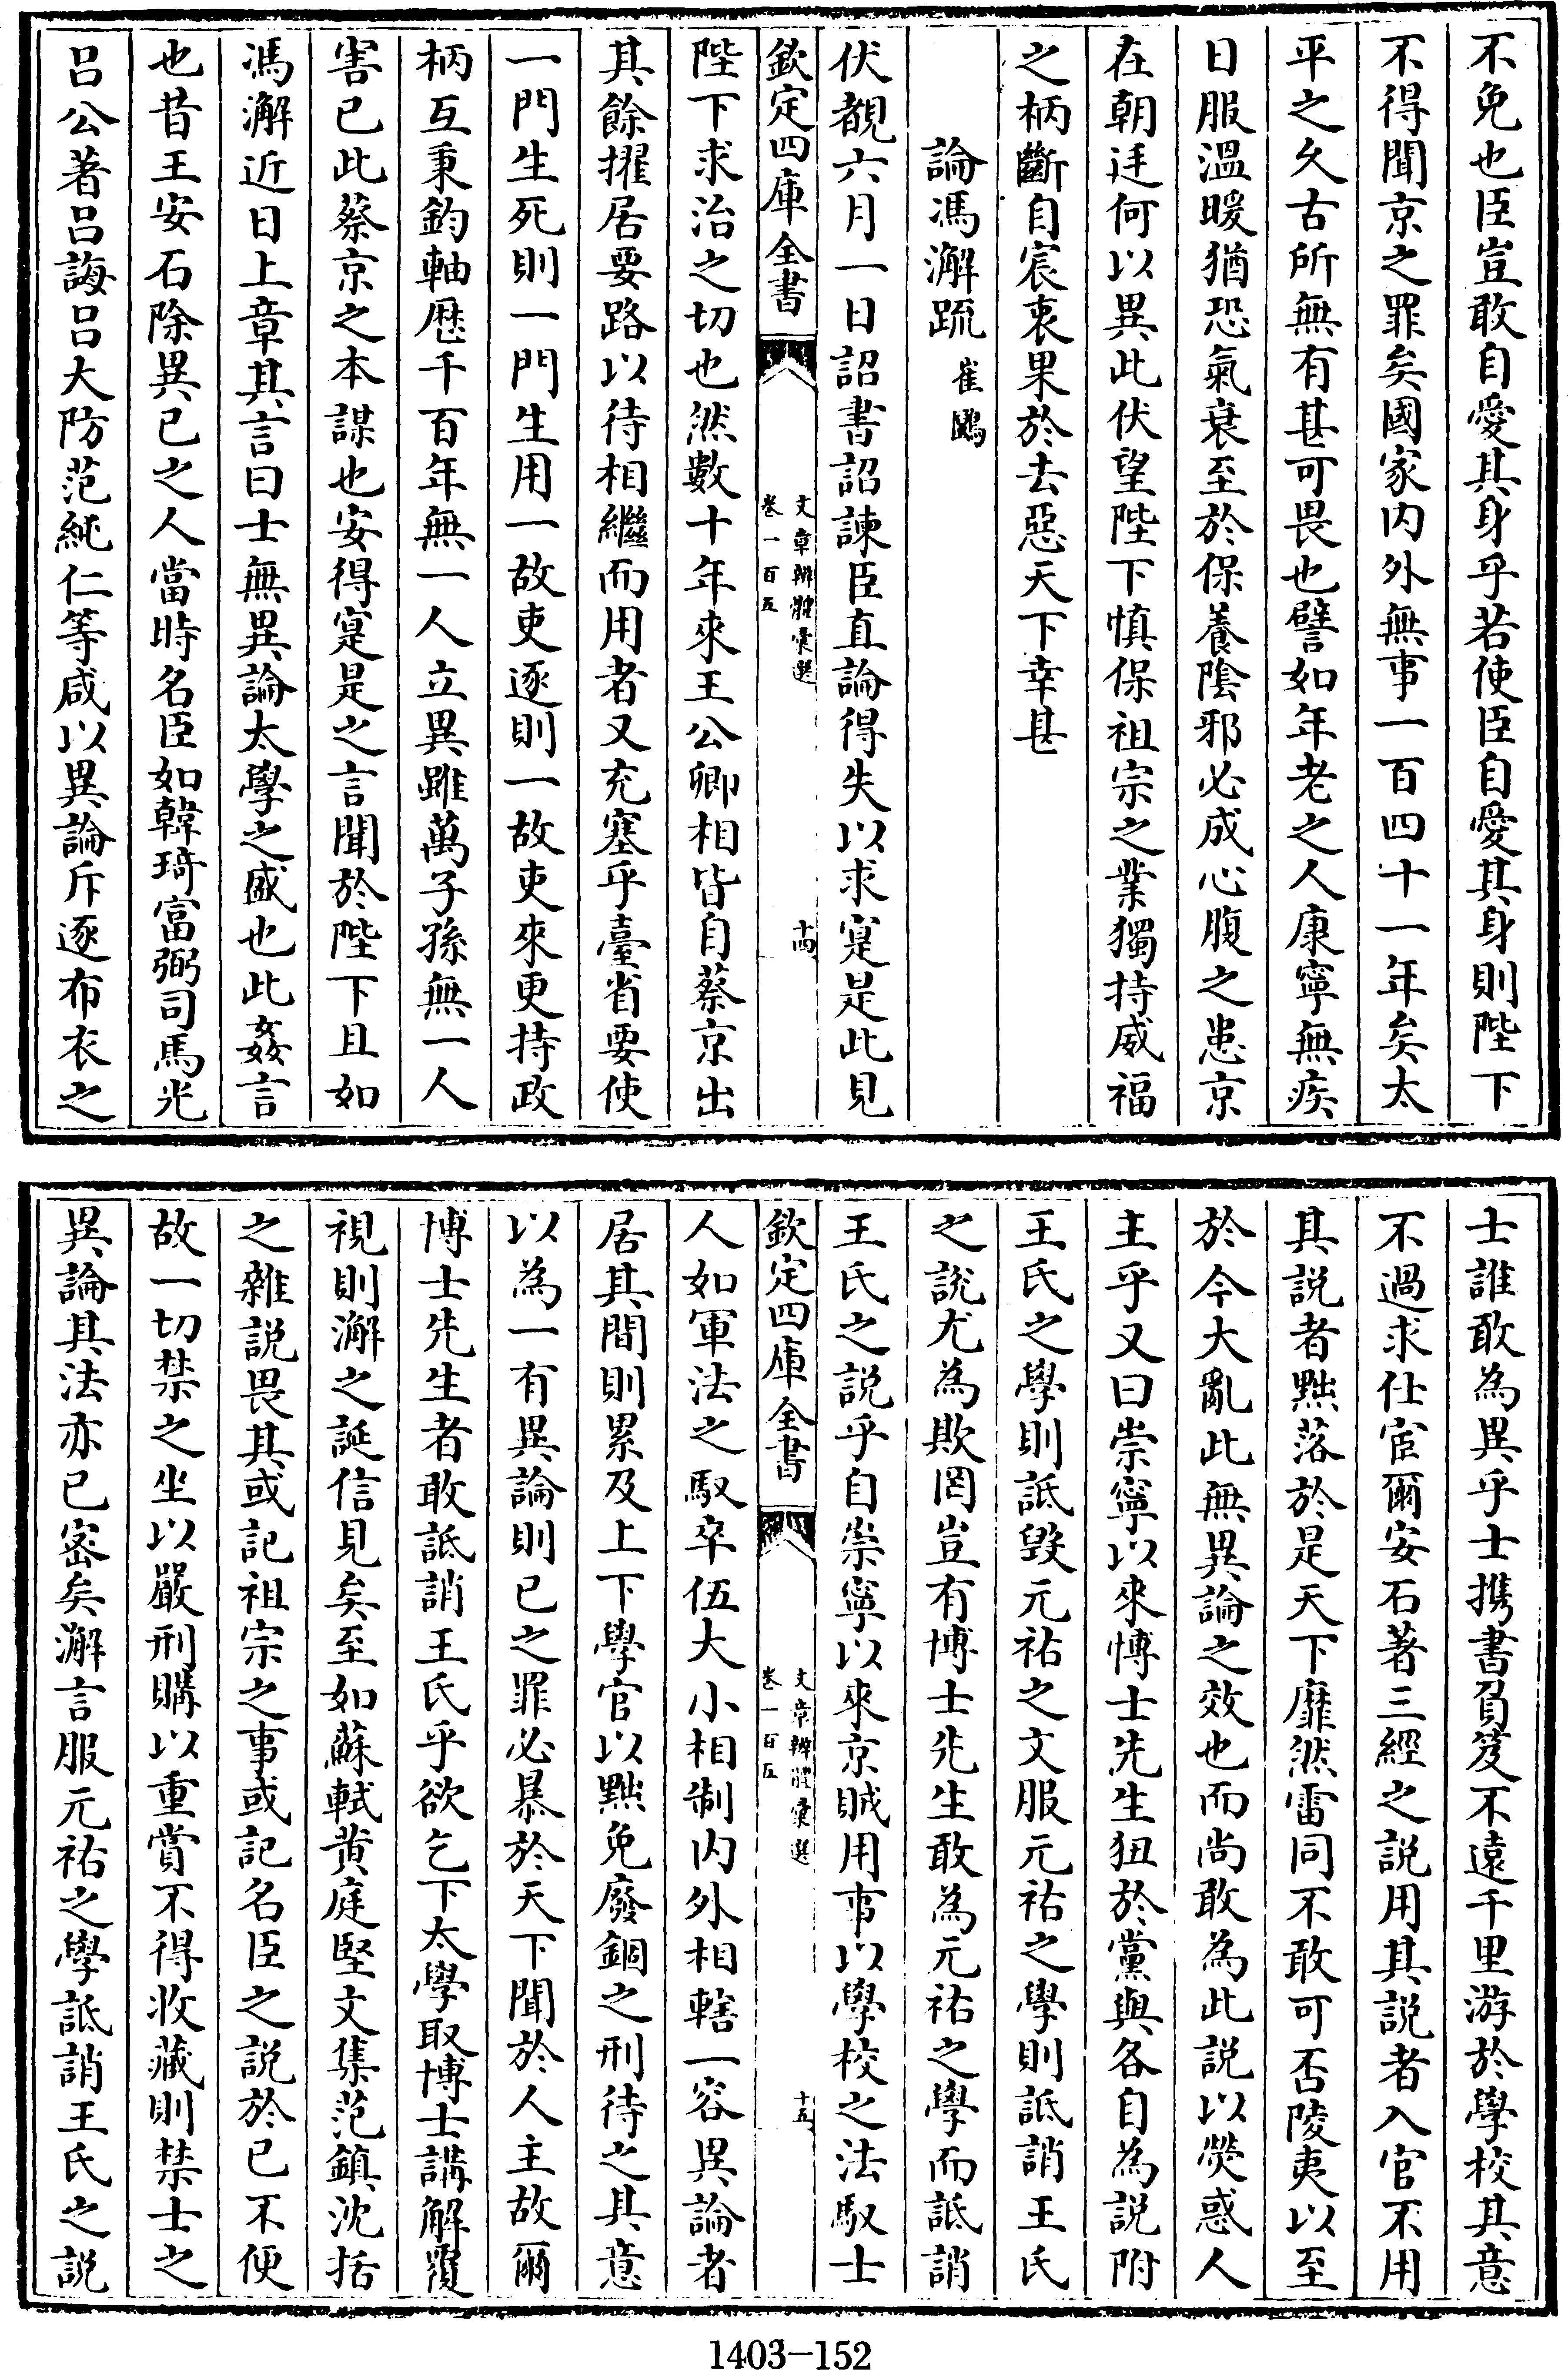 不免也臣豈敢自愛其身乎若使臣自愛其身則陛下
不得聞京之罪矣國家内外無事一百四十一年矣太
平之久古所無有甚可畏也譬如年老之人康寧無疾
日服溫暖猶恐氣衰至於保養陰邪必成心腹之患京
在朝廷何以異此伏望陛下慎保祖宗之業獨持威福
之柄斷自宸衷果於去惡天下幸甚
論馮澥疏 崔鶠
伏覩六月一日詔書詔諫臣直論得失以求寔是此見
欽定四庫全書
文章辨體彙選
卷一百五
十四
陛下求治之切也然數十年來王公卿相皆自蔡京出
其餘擢居要路以待相繼而用者又充塞乎臺省要使
一門生死則一門生用一故吏逐則一故吏來更持政
柄互秉鈞軸厯千百年無一人立異雖萬子孫無一人
害已此蔡京之本謀也安得寔是之言聞於陛下且如
馮澥近日上章其言曰士無異論太學之盛也此姦言
也昔王安石除異已之人當時名臣如韓琦富弼司馬光
吕公著吕誨吕大防范純仁等咸以異論斥逐布衣之
士誰敢為異乎士携書負笈不遠千里游於學校其意
不過求仕宦爾安石著三經之説用其説者入官不用
其説者黜落於是天下靡然雷同不敢可否陵夷以至
於今大亂此無異論之效也而尚敢為此説以熒惑人
主乎又曰崇寧以來博士先生狃於黨與各自為説附
王氏之學則詆毀元祐之文服元祐之學則詆誚王氏
之說尤為欺罔豈有博士先生敢為元祐之學而詆誚
王氏之説乎自崇寧以來京賊用事以學校之法馭士
欽定四庫全書
文章辨體彙選
卷一百五
十五
人如軍法之馭卒伍大小相制内外相轄一容異論者
居其間則累及上下學官以黜免廢錮之刑待之其意
以為一有異論則已之罪必暴於天下聞於人主故爾
博士先生者敢詆誚王氏乎欲乞下太學取博士講解覆
視則澥之誕信見矣至如蘇軾黄庭堅文集范鎮沈括
之雜説畏其或記祖宗之事或記名臣之説於已不便
故一切禁之坐以嚴刑購以重賞不得收藏則禁士之
異論其法亦已密矣澥言服元祐之學詆誚王氏之説
1403-152